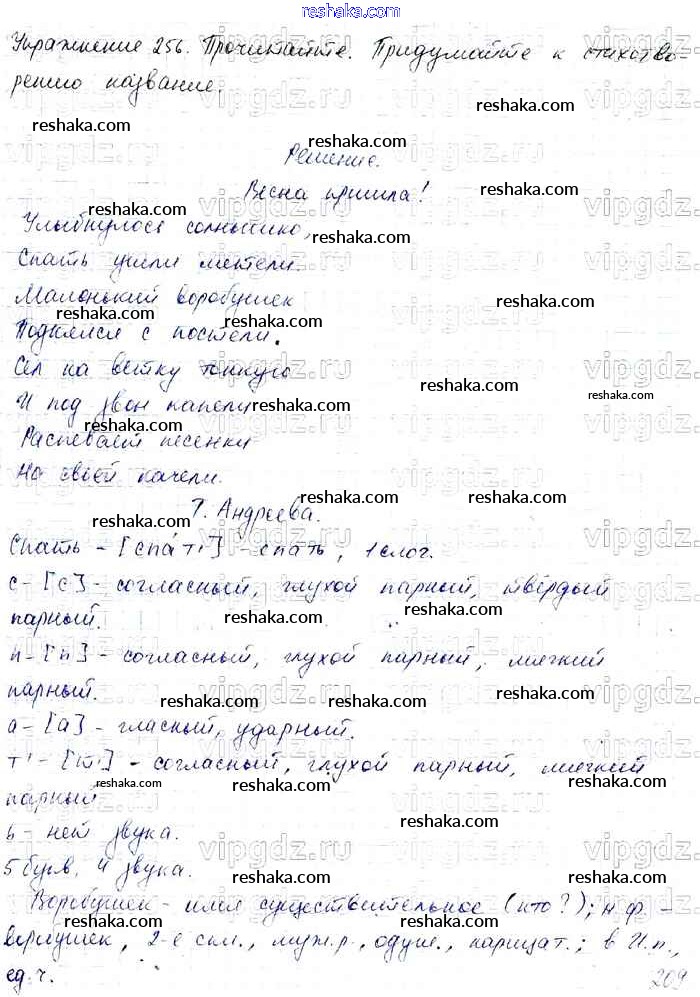 reshaka.com
Упражнение 256. Прочитайте. Придумайте к стихотво-
рению название.
Решение.
Весна пришла!
Улыбнулось солнышко,
Спать ушли метели.
Маленький воробушек
Поднялся с постели.
Сел на ветку тонкую
И под звон капели
Распевает песенки
На своей качели.
Т. Андреева.
Спать - [спа́т'] - спать, 1 слог.
с - [с] - согласный, глухой парный, твёрдый
парный.
п - [п] - согласный, глухой парный, мягкий
парный.
а - [а] - гласный, ударный.
т' - [т'] - согласный, глухой парный, мягкий
парный
ь - нет звука.
5 букв, 4 звука.
Воробушек - имя существительное (кто?); н.ф. -
2-е скл., муж.р., одуш., нарицат.; в И.п.,
ед.ч.
209